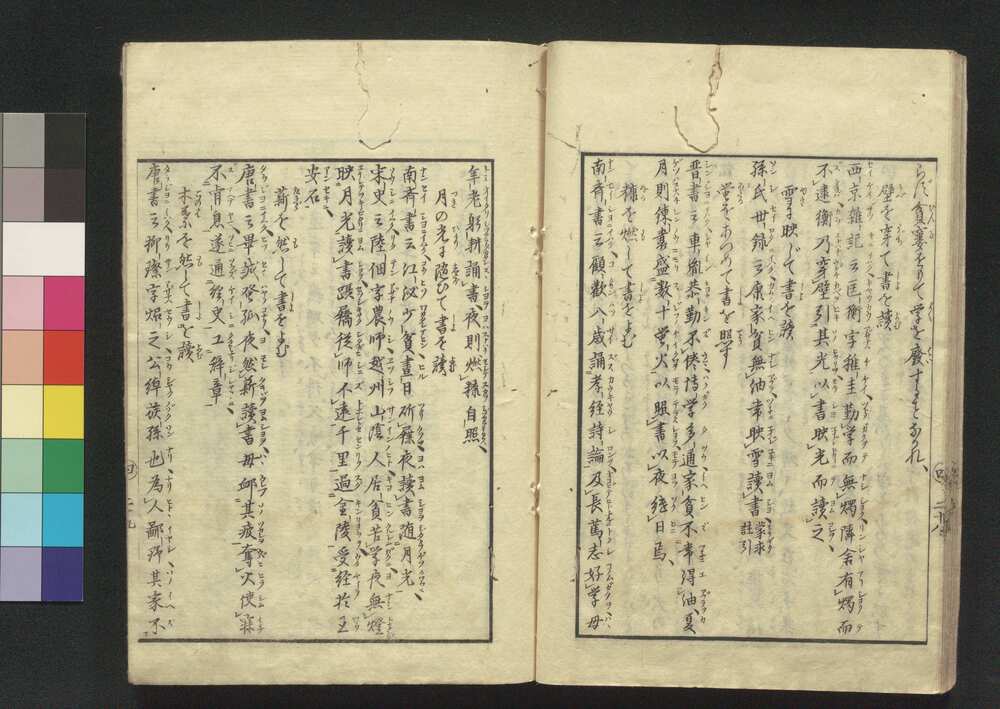 らず貧窶をもて学を廃することなかれ、
壁を穿て書を読
西京雑記云匡衡字稚圭勤学而無燭隣舎有燭而
不逮衡乃穿壁引其光以書映光而読之
雪に映じて書を読
孫氏世録云康家貧無油常映雪読書 蒙求註引
蛍をあつめて書を照す
晋書云車胤恭勤不倦博学多通家貧不常得油夏
月則練嚢盛数十蛍火以照書以夜継日焉
糠を燃して書をよむ
南斉書云顧歓八歳誦孝経詩論及長篤志好学母
年老躬耕誦書夜則燃糠自照
月の光に随ひて書を読
南斉書云江泌少貧昼日斫屧夜読書随月光
宋史云陸佃字農師越州山陰人居貧苦学夜無燈
映月光読書躡屩従師不遠千里過金陵受経於王
安石
薪を然して書をよむ
唐書云畢諴登孤夜然薪読書母卹其疲奪火使寐
不肯息遂通経史工辞章
木葉を然して書を読
唐書云柳璨字炤之公綽族孫也為人鄙野其家不